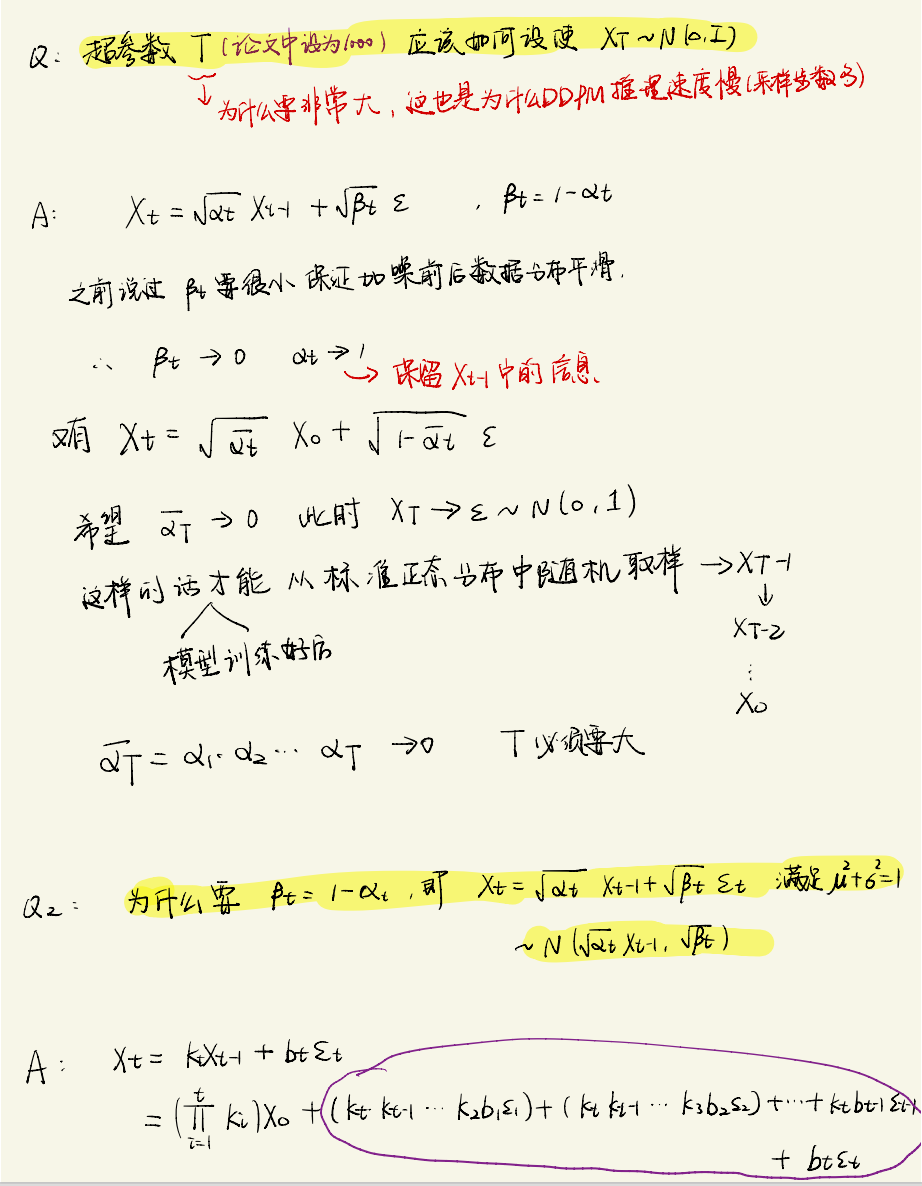 Q: 超参数 T (论文中设为1000) 应该如何设使 X_T ~ N(0,I)
↓为什么要非常大，这也是为什么DDPM推理速度慢(采样步数多)
A: X_t = √α_t X_{t-1} + √β_t ε , β_t = 1-α_t
之前说过 β_t 要很小 保证加噪前后数据分布平滑.
∴ β_t → 0 α_t → 1
↪ 保留 X_{t-1} 中的信息.
又有 X_t = √ᾱ_t X_0 + √(1-ᾱ_t) ε
希望 ᾱ_T → 0 此时 X_T → ε ~ N(0,1)
这样的话才能 从标准正态分布中随机取样 → X_{T-1}
↓
X_{T-2}
模型训练好后
⋮
X_0
ᾱ_T = α_1·α_2 ⋯ α_T → 0 T必须要大
Q2: 为什么要 β_t = 1-α_t , 即 X_t = √α_t X_{t-1} + √β_t ε_t 满足 μ²+σ²=1
~ N(√α_t X_{t-1}, √β_t)
A: X_t = k_t X_{t-1} + b_t ε_t
= (∏_{i=1}^{t} k_i)X_0 + (k_t k_{t-1} ⋯ k_2 b_1 ε_1) + (k_t k_{t-1} ⋯ k_3 b_2 ε_2) + ⋯ + k_t b_{t-1} ε_{t-1}
+ b_t ε_t